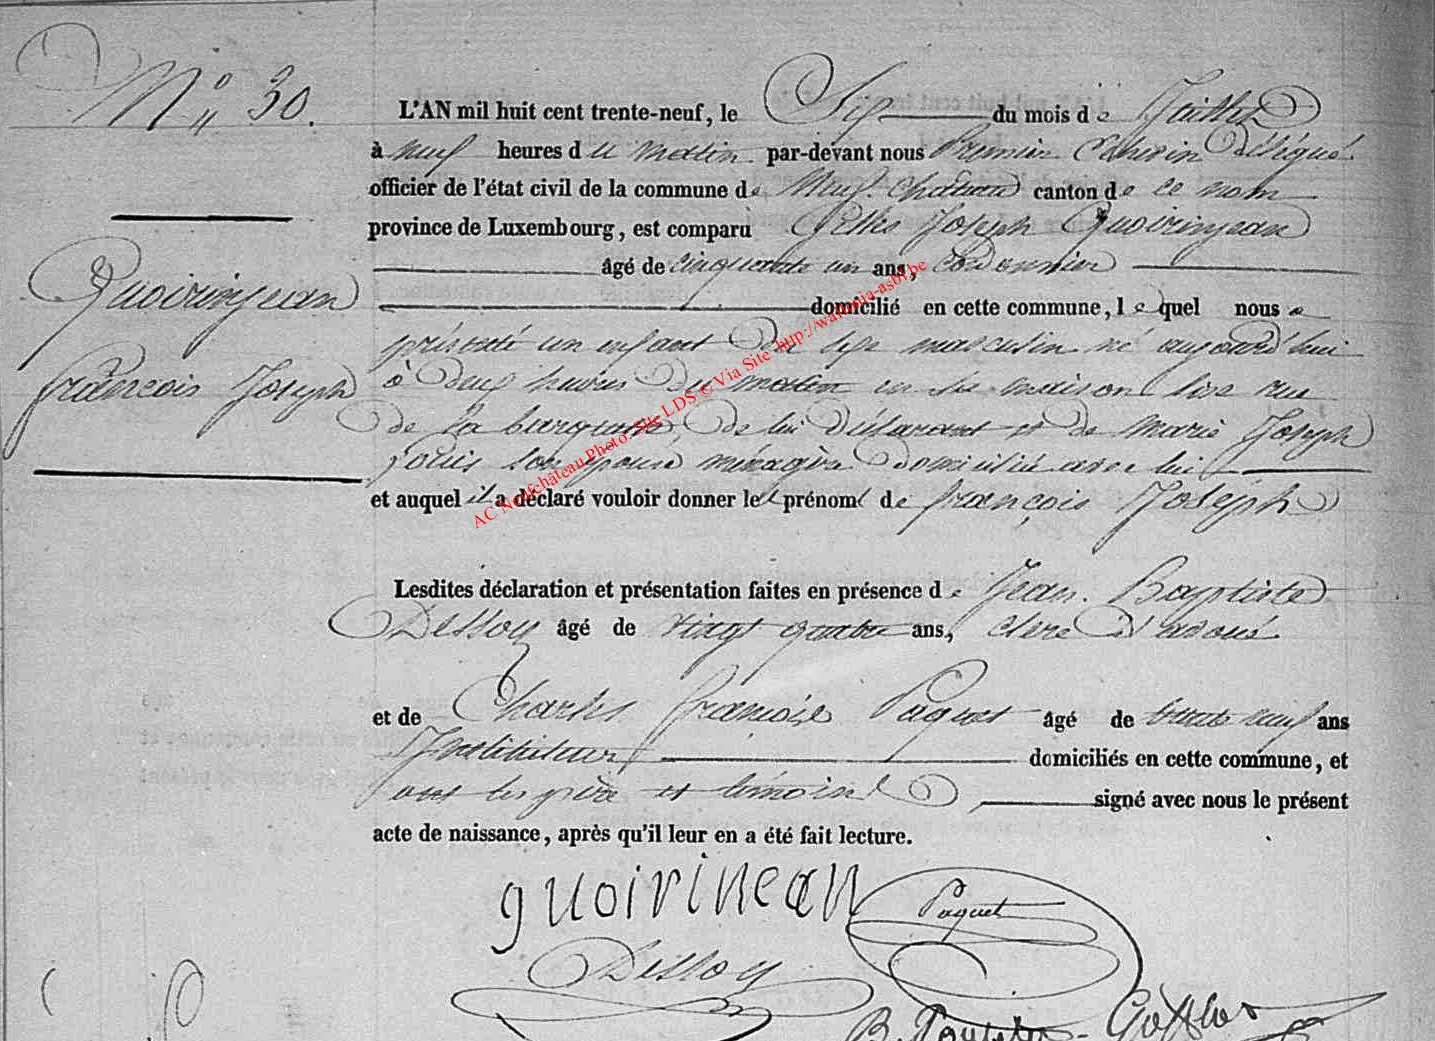 N° 30.
L'AN mil huit cent trente-neuf, le Sep du mois de Juillet
à neuf heures du matin par-devant nous Premier Echevin Délégué
officier de l'état civil de la commune de Neufchateau canton de ce nom
province de Luxembourg, est comparu Gilles Joseph Quoirinjean
âgé de cinquante un ans, cordonnier
domicilié en cette commune, lequel nous a
présenté un enfant du sexe masculin né aujourd'hui
à deux heures du matin en sa maison sise rue
de la , de lui déclarant et de Marie Joseph
son épouse ménagère domiciliée avec lui
et auquel il a déclaré vouloir donner les prénoms de françois Joseph
Quoirinjean
françois Joseph
Lesdites déclaration et présentation faites en présence de Jean Baptiste
Dessoy âgé de vingt quatre ans, clerc d'avoué
et de Charles françois Paquet âgé de trente neuf ans
Instituteur domiciliés en cette commune, et
ont les père et témoins signé avec nous le présent
acte de naissance, après qu'il leur en a été fait lecture.
quoirinean
Paquet
Dessoy
AC Neufchâteau Photo: Site LDS © Via Site http://wallonia-asbl.be